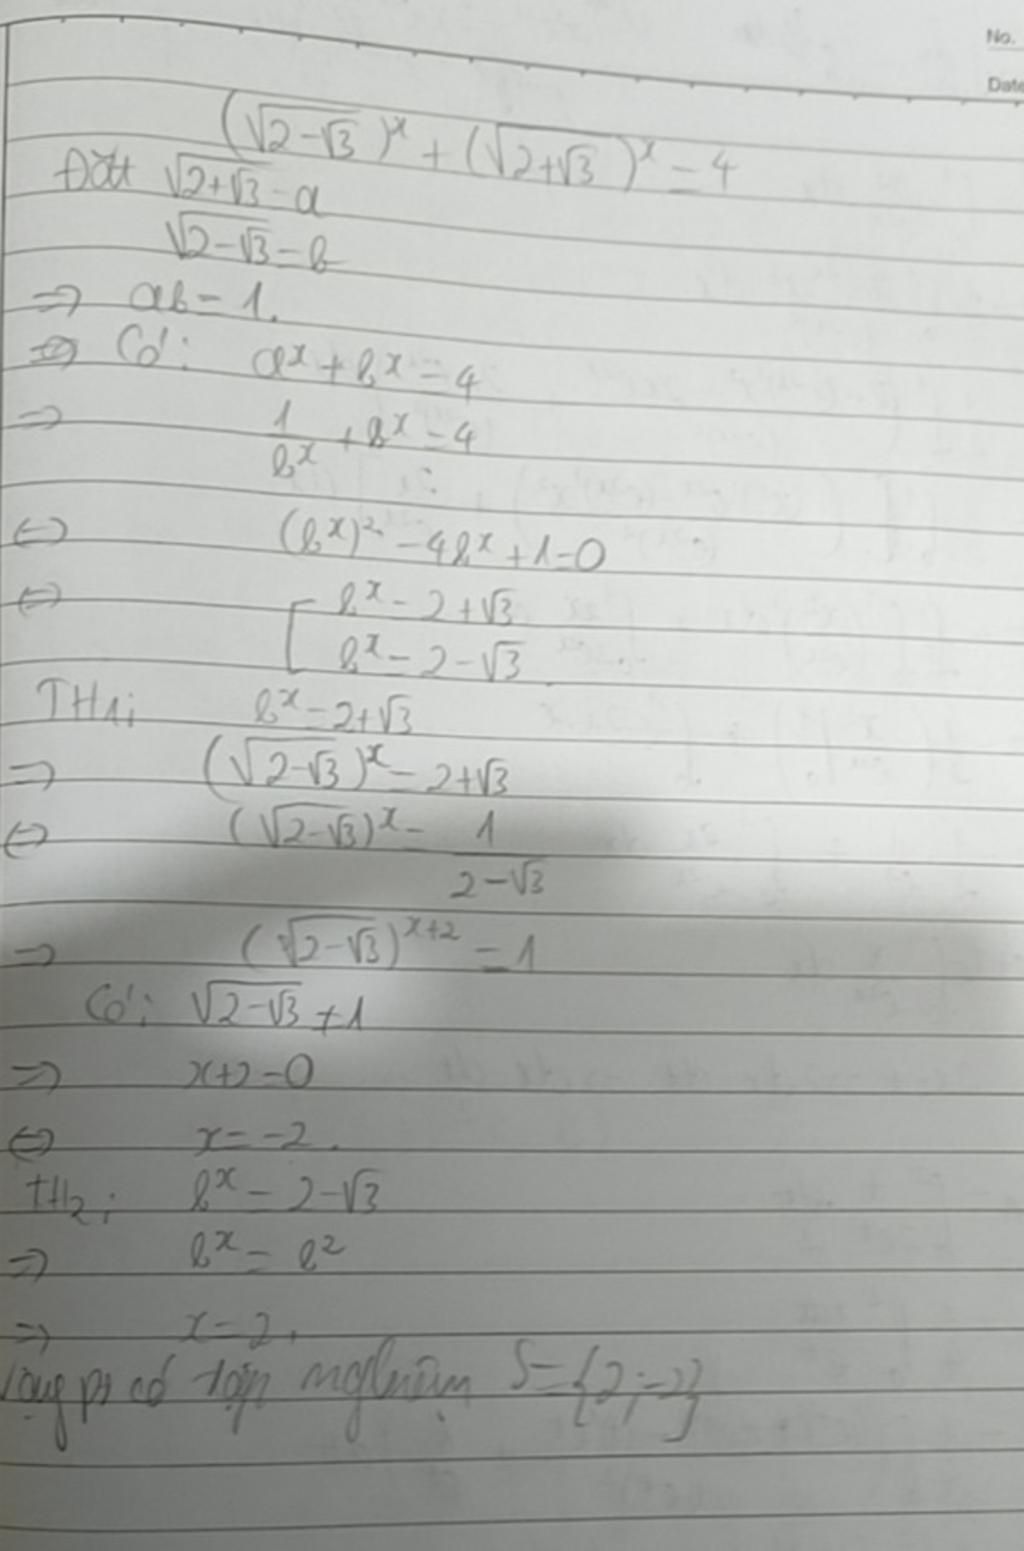 No.
Date
(√(2-√3))^x + (√(2+√3))^x = 4
Đặt √(2+√3) = a
√(2-√3) = b
⇒ ab = 1.
⇔ Có: a^x + b^x = 4
⇒ 1/b^x + b^x = 4
⇔ (b^x)^2 - 4b^x + 1 = 0
⇔ [ b^x = 2+√3
b^x = 2-√3
TH1: b^x = 2+√3
⇒ (√(2-√3))^x = 2+√3
⇔ (√(2-√3))^x = 1/(2-√3)
⇒ (√(2-√3))^(x+2) = 1
Có: √(2-√3) ≠ 1
⇒ x+2=0
⇔ x = -2.
TH2: b^x = 2-√3
⇒ b^x = b^2
⇒ x = 2.
Vậy pt có tập nghiệm S={2;-2}